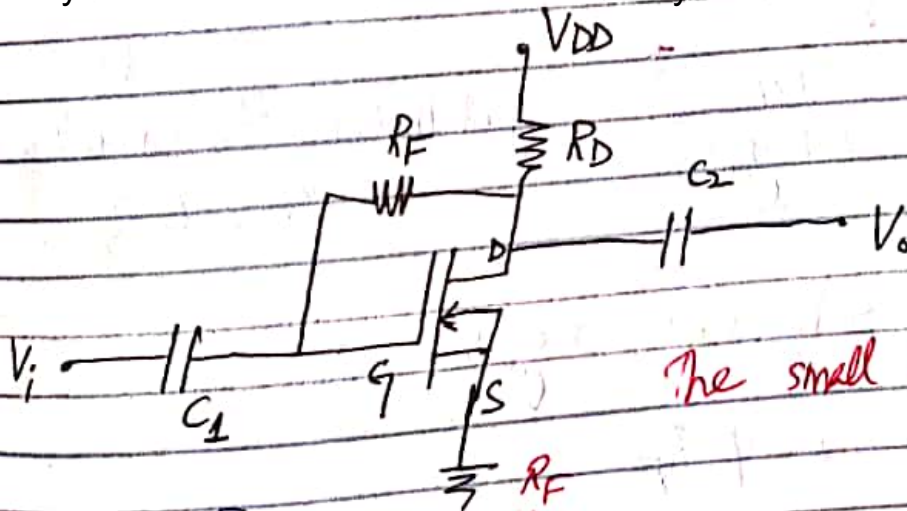 VDD
RF
RD
C2
D
Vo
Vi
C1
G
S
The small
RF